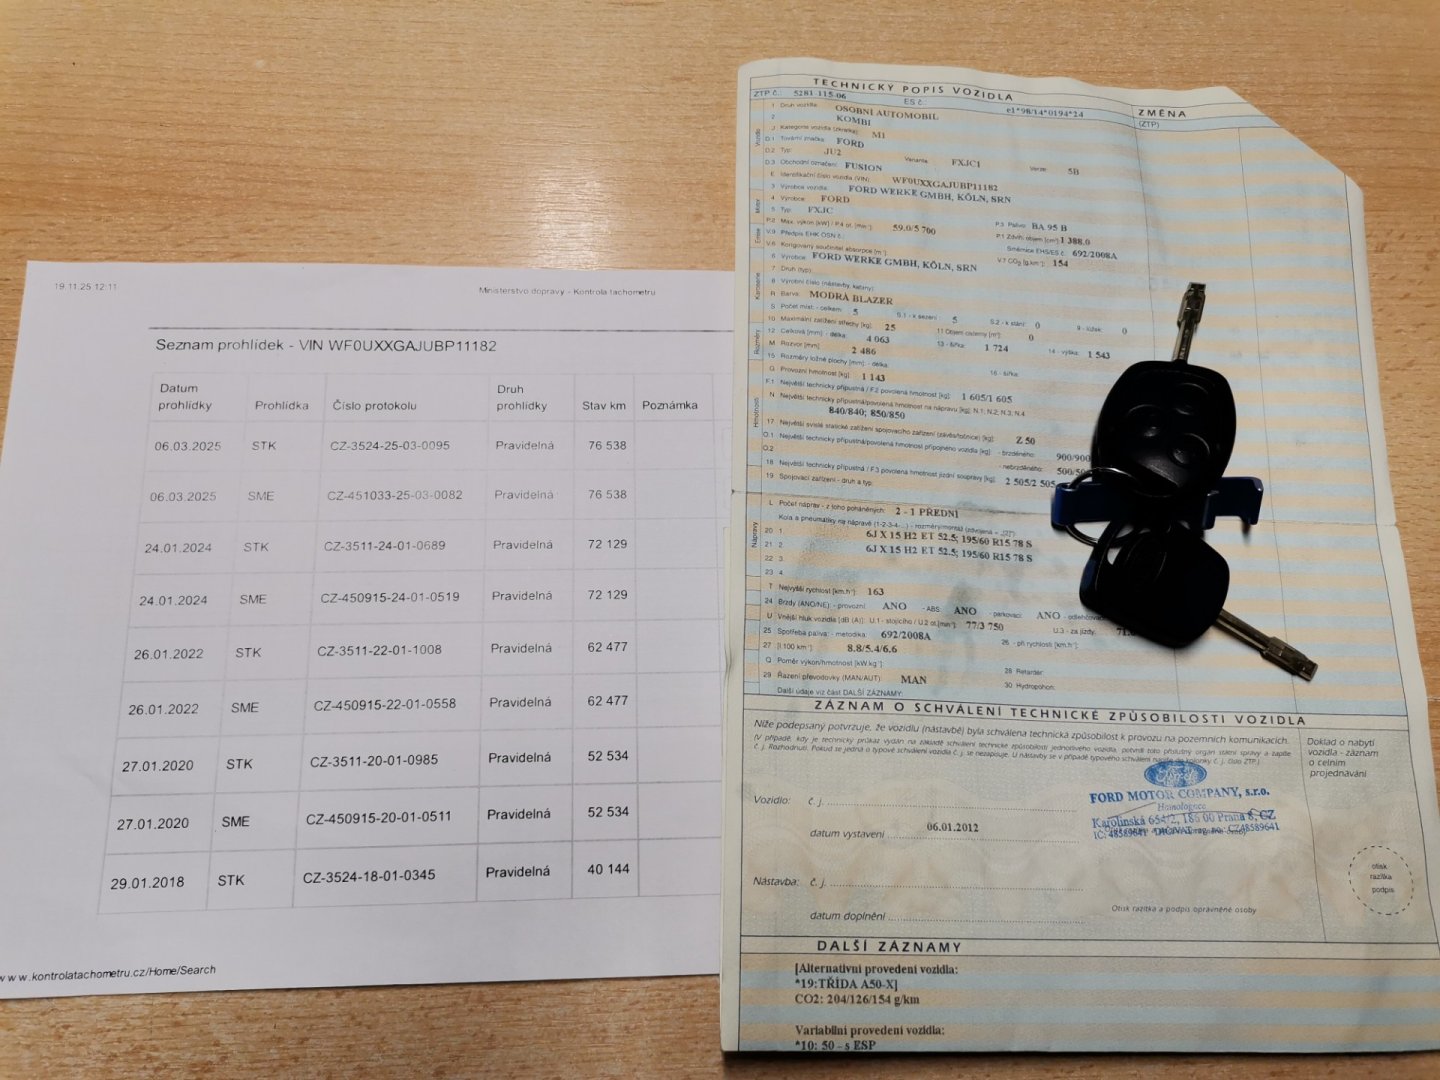 19.11.25 12:11
Ministerstvo dopravy - Kontrola tachometru
Seznam prohlídek - VIN WF0UXXGAJUBP11182
Datum prohlídky Prohlídka Číslo protokolu Druh prohlídky Stav km Poznámka
06.03.2025 STK CZ-3524-25-03-0095 Pravidelná 76 538
06.03.2025 SME CZ-451033-25-03-0082 Pravidelná 76 538
24.01.2024 STK CZ-3511-24-01-0689 Pravidelná 72 129
24.01.2024 SME CZ-450915-24-01-0519 Pravidelná 72 129
26.01.2022 STK CZ-3511-22-01-1008 Pravidelná 62 477
26.01.2022 SME CZ-450915-22-01-0558 Pravidelná 62 477
27.01.2020 STK CZ-3511-20-01-0985 Pravidelná 52 534
27.01.2020 SME CZ-450915-20-01-0511 Pravidelná 52 534
29.01.2018 STK CZ-3524-18-01-0345 Pravidelná 40 144
www.kontrolatachometru.cz/Home/Search
TECHNICKÝ POPIS VOZIDLA
ZTP č.: 5281-115-06 ES č. e1*98/14*0194*24
ZMĚNA
(ZTP)
1 Druh vozidla: OSOBNÍ AUTOMOBIL
2 KOMBI
J Kategorie vozidla (zkratka): M1
D.1 Tovární značka: FORD
D.2 Typ: JU2 Varianta: FXJC1 Verze: 5B
D.3 Obchodní označení: FUSION
E Identifikační číslo vozidla (VIN): WF0UXXGAJUBP11182
3 Výrobce vozidla: FORD WERKE GMBH, KÖLN, SRN
4 Výrobce: FORD
5 Typ: FXJC
P.2 Max. výkon [kW] / P.4 ot. [min⁻¹]: 59.0/5 700 P.3 Palivo: BA 95 B
P.1 Zdvih. objem [cm³]: 1 388.0
V.9 Předpis EHK OSN č.: Směrnice EHS/ES č. 692/2008A
V.6 Korigovaný součinitel absorpce [m⁻¹]: V.7 CO₂ [g.km⁻¹]: 154
6 Výrobce: FORD WERKE GMBH, KÖLN, SRN
7 Druh (typ):
8 Výrobní číslo (nástavby, kabiny):
R Barva: MODRÁ BLAZER
S Počet míst: - celkem: 5 S.1 - k sezení: 5 S.2 - k stání: 0 9 - lůžek: 0
10 Maximální zatížení střechy [kg]: 25 11 Objem cisterny [m³]: 0
12 Celková [mm]: - délka: 4 063 13 - šířka: 1 724 14 - výška: 1 543
M Rozvor [mm]: 2 486
15 Rozměry ložné plochy [mm]: - délka: 16 - šířka:
G Provozní hmotnost [kg]: 1 143
F.1 Největší technicky přípustná / F.2 povolená hmotnost [kg]: 1 605/1 605
N Největší technicky přípustná/povolená hmotnost na nápravu [kg]: N.1; N.2; N.3; N.4
840/840; 850/850
17 Největší svislé statické zatížení spojovacího zařízení (závěs/točnice) [kg]: Z 50
O.1 Největší technicky přípustná/povolená hmotnost přípojného vozidla [kg] - brzděného: 900/900
O.2 - nebrzděného:
18 Největší technicky přípustná / F.3 povolená hmotnost jízdní soupravy [kg]: 2 505/2 505
19 Spojovací zařízení - druh a typ:
L Počet náprav - z toho poháněných: 2 - 1 PŘEDNÍ
20 1. 6J X 15 H2 ET 52.5; 195/60 R15 78 S
21 2. 6J X 15 H2 ET 52.5; 195/60 R15 78 S
22 3.
23 4.
T Nejvyšší rychlost [km.h⁻¹]: 163
24 Brzdy (ANO/NE): - provozní ANO - ABS ANO - parkovací ANO
U Vnější hluk vozidla [dB (A)]: U.1 - stojícího / U.2 ot.[min⁻¹]: 77/3 750 U.3 - za jízdy:
25 Spotřeba paliva: - metodika: 692/2008A 26 - při rychlosti [km.h⁻¹]:
27 [l.100 km⁻¹] 8.8/5.4/6.6
Q Poměr výkon/hmotnost [kW.kg⁻¹] 28 Retardér:
29 Řazení převodovky (MAN/AUT): MAN 30 Hydropohon:
Další údaje viz část DALŠÍ ZÁZNAMY:
ZÁZNAM O SCHVÁLENÍ TECHNICKÉ ZPŮSOBILOSTI VOZIDLA
Níže podepsaný potvrzuje, že vozidlu (nástavbě) byla schválena technická způsobilost k provozu na pozemních komunikacích.
Doklad o nabytí
vozidla - záznam
o celním
projednávání
Ford
FORD MOTOR COMPANY, s.r.o.
Homologace
Karolinská 654/2, 186 00 Praha 8, CZ
Vozidlo: č. j.
datum vystavení 06.01.2012
Nástavba: č. j.
datum doplnění
Otisk razítka a podpis oprávněné osoby
otisk
razítka
podpis
DALŠÍ ZÁZNAMY
[Alternativní provedení vozidla:
*19:TŘÍDA A50-X]
CO2: 204/126/154 g/km
Variabilní provedení vozidla:
*10: 50 - s ESP